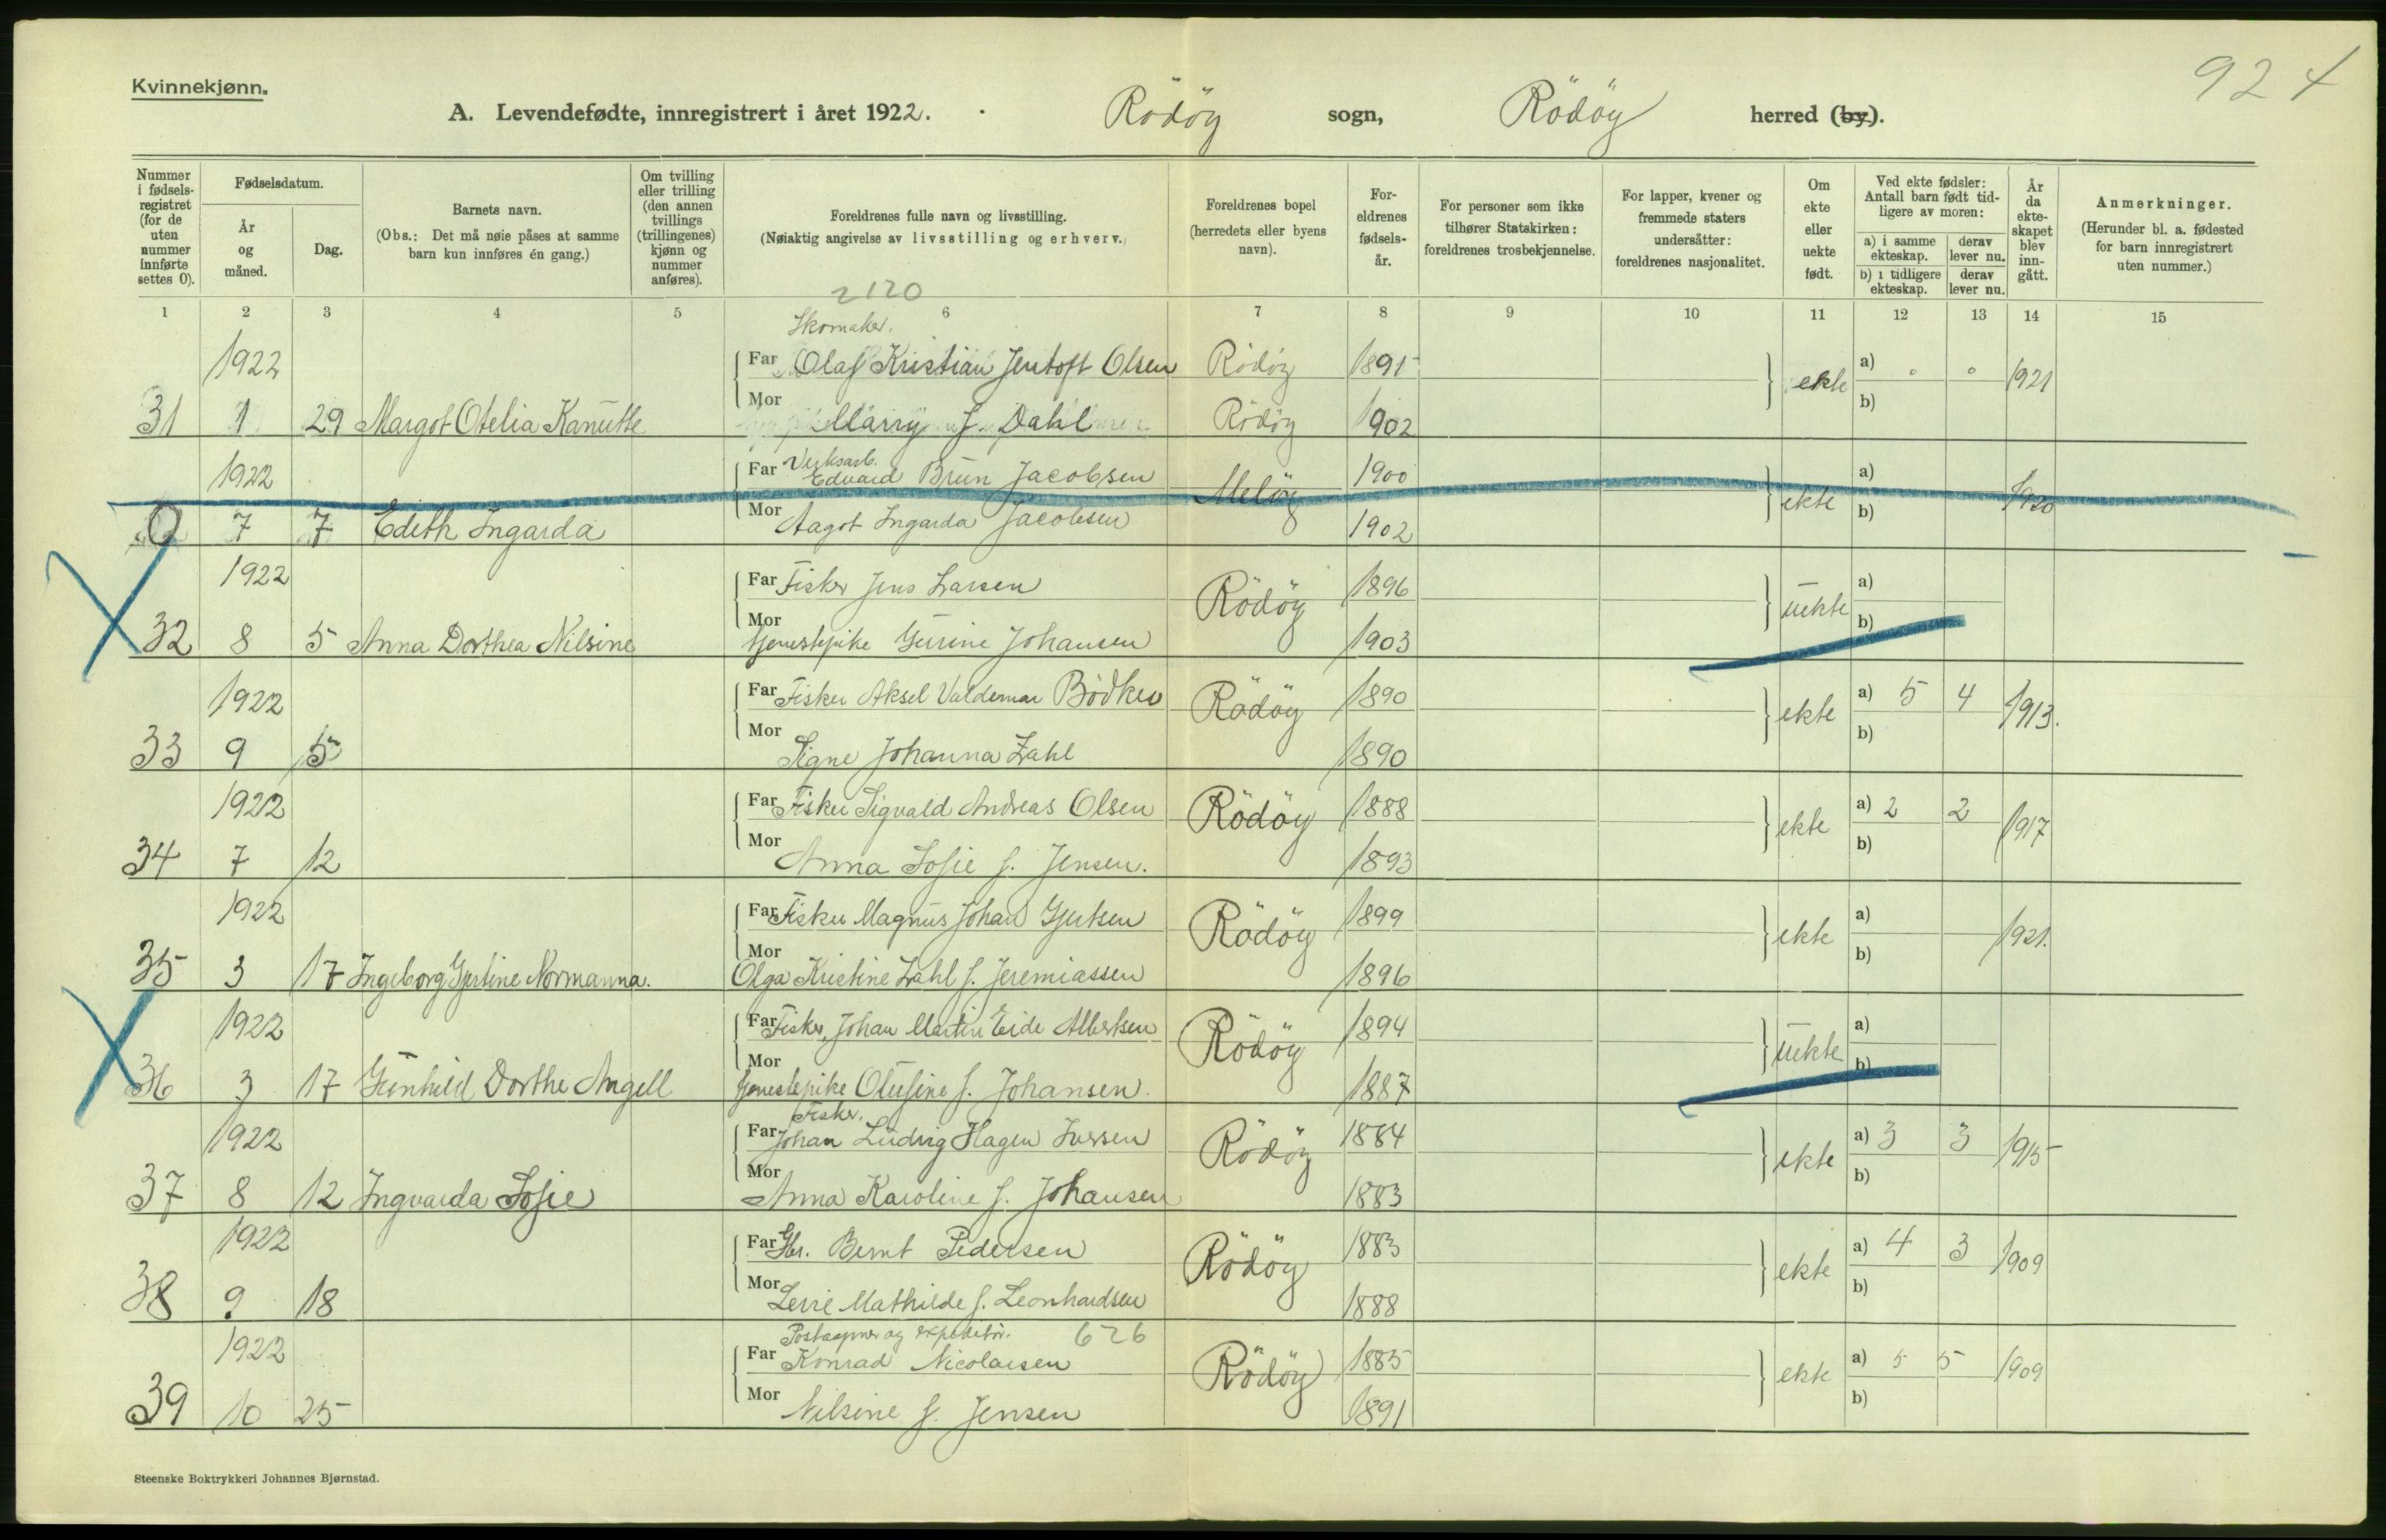 Kvinnekjønn.
924
A. Levendefødte, innregistrert i året 1922. Rödöy sogn, Rödöy herred (by).
Nummer i fødselsregistret (for de uten nummer innførte settes 0).
Fødselsdatum.
År og måned.
Dag.
Barnets navn.
(Obs.: Det må nøie påses at samme barn kun innføres én gang.)
Om tvilling eller trilling (den annen tvillings (trillingenes) kjønn og nummer anføres).
Foreldrenes fulle navn og livsstilling.
(Nøiaktig angivelse av livsstilling og erhverv.)
Foreldrenes bopel (herredets eller byens navn).
Foreldrenes fødselsår.
For personer som ikke tilhører Statskirken: foreldrenes trosbekjennelse.
For lapper, kvener og fremmede staters undersåtter: foreldrenes nasjonalitet.
Om ekte eller uekte født.
Ved ekte fødsler: Antall barn født tidligere av moren:
a) i samme ekteskap. derav lever nu.
b) i tidligere ekteskap. derav lever nu.
År da ekteskapet blev inngått.
Anmerkninger.
(Herunder bl. a. fødested for barn innregistrert uten nummer.)
2120
1 2 3 4 5 6 7 8 9 10 11 12 13 14 15
Skomaker.
1922 Far Olaf Kristian Jentoft Olsen Rödöy 1891 ekte a) 0 0 1921
31 1 29 Margot Otelia Kanutte Mor Marry f. Dahl Rödöy 1902 b)
Verksarb.
1922 Far Edvard Brun Jacobsen Melöy 1900 ekte a) 1920
0 7 7 Edith Ingarda Mor Aagot Ingarda Jacobsen 1902 b)
1922 Far Fisker Jens Larsen Rödöy 1896 uekte a)
32 8 5 Anna Dorthea Nilsine Mor tjenestepike Gurine Johansen 1903 b)
1922 Far Fisker Aksel Valdemar Bödker Rödöy 1890 ekte a) 5 4 1913.
33 9 5 Mor Signe Johanna Zahl 1890 b)
1922 Far Fisker Sigvald Andreas Olsen Rödöy 1888 ekte a) 2 2 1917
34 7 12 Mor Anna Sofie f. Jensen. 1893 b)
1922 Far Fisker Magnus Johan Gjertsen Rödöy 1899 ekte a) 1921.
35 3 17 Ingeborg Gjertine Normanna. Mor Olga Kristine Zahl f. Jeremiassen 1896 b)
1922 Far Fisker Johan Martin Eide Albertsen Rödöy 1894 uekte a)
36 3 17 Gunhild Dorthe Angell Mor tjenestepike Olufine f. Johansen. 1887 b)
Fisker.
1922 Far Johan Ludvig Hagen Iversen Rödöy 1884 ekte a) 3 3 1915
37 8 12 Ingvarda Sofie Mor Anna Karoline f. Johansen 1883 b)
1922 Far Gbr. Bernt Pedersen Rödöy 1883 ekte a) 4 3 1909
38 9 18 Mor Mathilde f. Leonhardsen 1888 b)
Postaapner og expeditör. 626
1922 Far Konrad Nicolaisen Rödöy 1885 ekte a) 5 5 1909
39 10 25 Mor Nilsine f. Jensen 1891 b)
Steenske Boktrykkeri Johannes Bjørnstad.